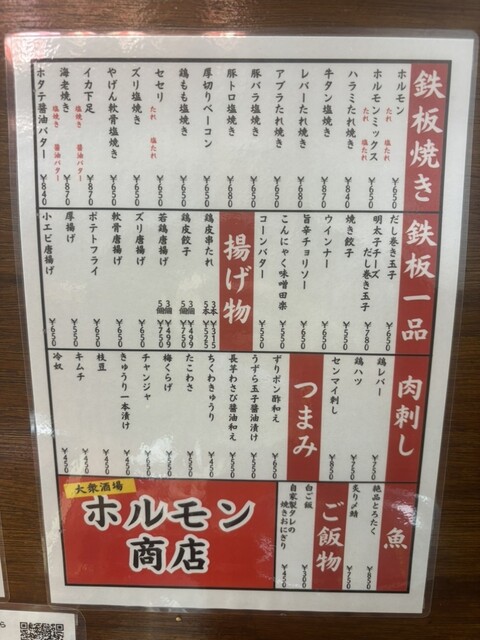 鉄板焼き
ホルモン たれ 塩たれ ¥650
ホルモンミックス たれ 塩たれ ¥650
ハラミたれ焼き ¥840
牛タン塩焼き ¥870
レバーたれ焼き ¥680
アブラたれ焼き ¥650
豚バラ塩焼き ¥650
豚トロ塩焼き ¥680
厚切りベーコン ¥680
鶏もも塩焼き ¥650
セセリ たれ 塩たれ ¥650
ズリ塩焼き ¥650
やげん軟骨塩焼き ¥650
イカ下足 塩焼き 醤油バター ¥870
海老焼き 塩焼き 醤油バター ¥870
ホタテ醤油バター ¥840
鉄板一品
だし巻き玉子 ¥650
明太子チーズだし巻き玉子 ¥780
焼き餃子
ウインナー ¥650
旨辛チョリソー ¥650
こんにゃく味噌田楽 ¥550
コーンバター ¥550
揚げ物
鶏皮串たれ 3本 ¥315 5本 ¥525
鶏皮餃子 3個 ¥499 5個 ¥750
若鶏唐揚げ 3個 ¥499 5個 ¥750
ズリ唐揚げ ¥650
軟骨唐揚げ ¥650
ポテトフライ ¥650
厚揚げ ¥550
小エビ唐揚げ ¥650
肉刺し
鶏レバー ¥750
鶏ハツ ¥750
センマイ刺し ¥850
つまみ
ずりポン酢和え ¥650
うずら玉子醤油漬け ¥550
長芋わさび醤油和え ¥550
ちくわきゅうり ¥550
たこわさ ¥550
梅くらげ ¥550
チャンジャ ¥550
きゅうり一本漬け ¥450
枝豆 ¥450
キムチ ¥450
冷奴 ¥450
魚
絶品とろたく ¥850
炙り〆鯖 ¥750
ご飯物
白ご飯 ¥300
自家製タレの焼きおにぎり ¥450
大衆酒場
ホルモン
商店